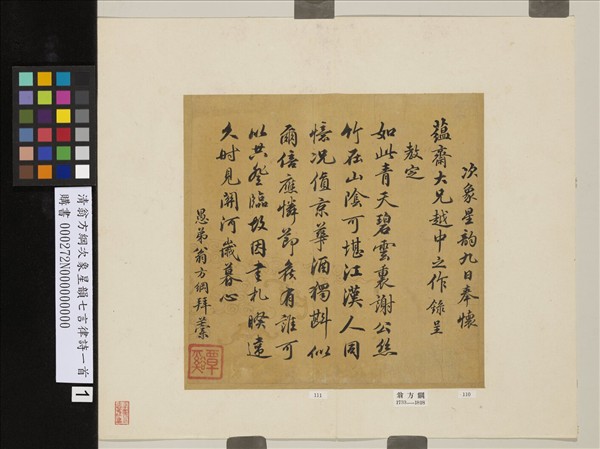 次象星韵九日奉懷
蘊齋大兄越中之作 錄呈
教定
如此青天碧雲裏謝公絲
竹在山陰可堪江漢人同
憶況值京華酒獨斟似
爾倍應憐節候有誰可
以共登臨故因書札暌違
久時見關河歲暮心
愚弟翁方綱拜藁
覃谿
110
翁方綱
1733—1818
111
清翁方綱次象星韻七言律詩一首
購書 000272N000000000
1